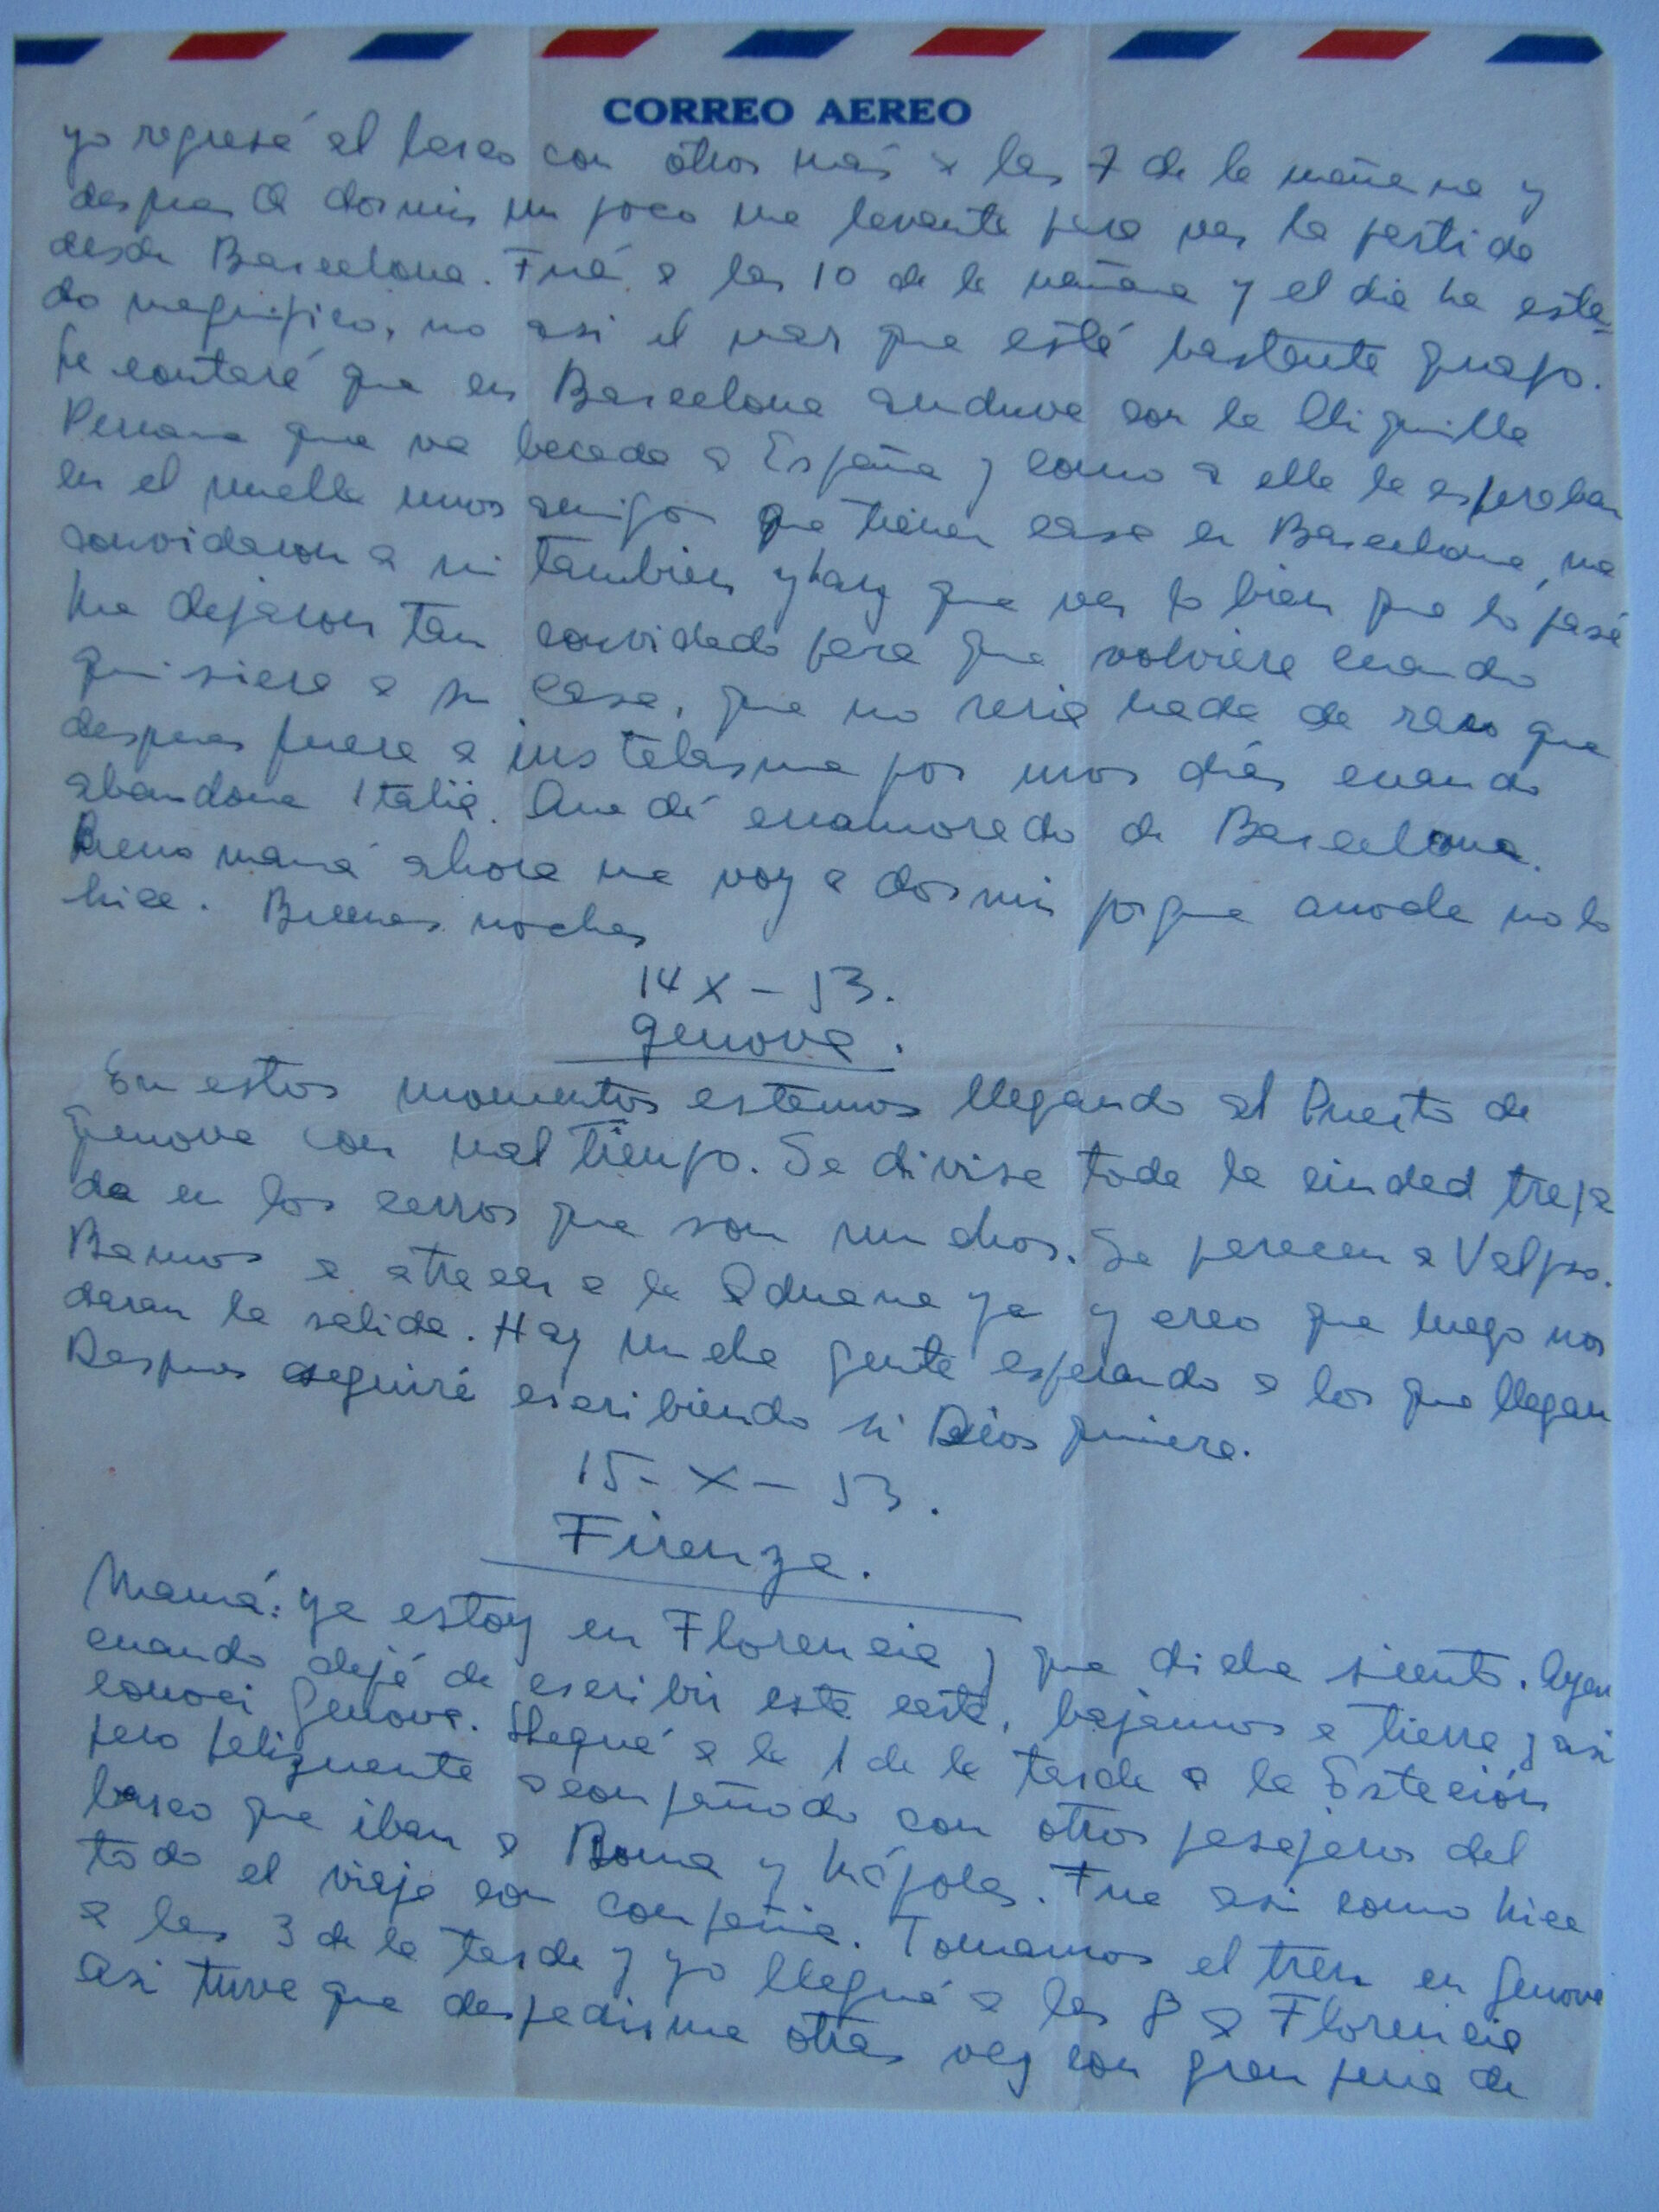 CORREO AEREO
yo regresé al barco con otros más a las 7 de la mañana y
despues de dormir un poco me levante para ver la partida
desde Barcelona. Fué a las 10 de la mañana y el dia ha esta-
do magnifico, no asi el mar que está bastante guapo.
Te contaré que en Barcelona anduve con la Chiquilla
Peruana que va becada a España y como a ella la esperaban
en el muelle unos amigos que tienen casa en Barcelona, me
convidaron a mi tambien y hay que ver lo bien que lo pasé
Me dejaron tan convidado para que volviera cuando
quisiera a su casa, que no seria nada de raro que
despues fuera a instalarme por unos dias cuando
abandone Italia. Quedé enamorado de Barcelona.
Bueno mamá ahora me voy a dormir porque anoche no lo
hice. Buenas noches
14 X - 53.
Genova.
En estos momentos estamos llegando al Puerto de
Genova con mal tiempo. Se divisa toda la ciudad trepa
da en los cerros que son muchos. Se parecen a Valpso.
Bamos a atracar a la Aduana ya y creo que luego nos
daran la salida. Hay mucha gente esperando a los que llegan
Despues seguiré escribiendo si Dios quiere.
15 - X - 53.
Firenze.
Mamá: ya estoy en Florencia y que dicha siento. Ayer
cuando dejé de escribir esta carta, bajamos a tierra y asi
conoci Genova. Llegué a la 1 de la tarde a la Estación
pero felizmente acompañado con otros pasajeros del
barco que iban a Roma y Nápoles. Fue asi como hice
todo el viaje con compañia. Tomamos el tren en Genova
a las 3 de la tarde y yo llegué a las 8 a Florencia
Asi tuve que despedirme otra vez con gran pena de